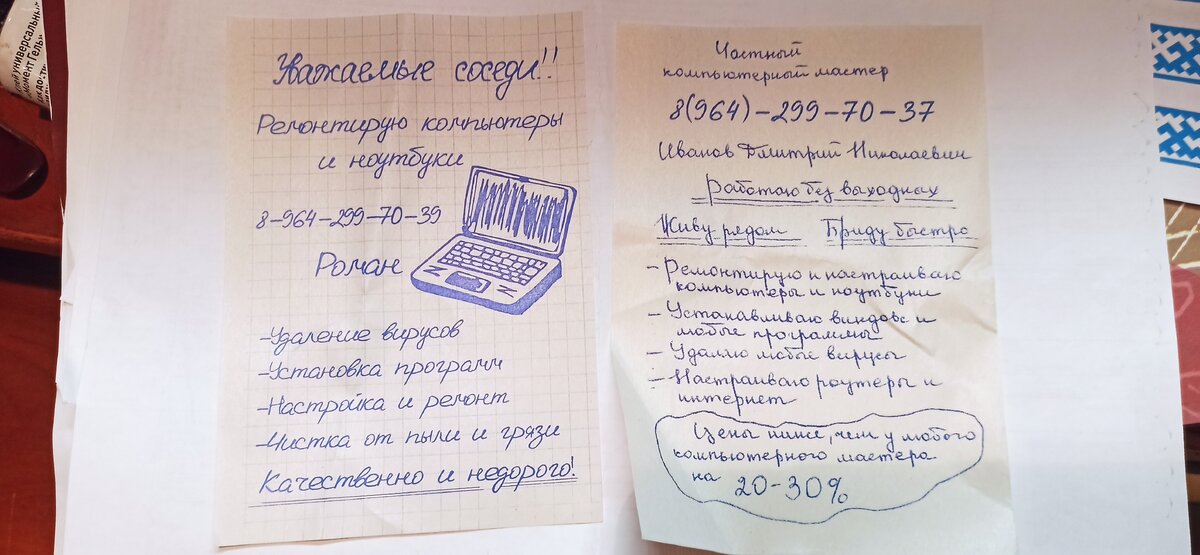 Уважаемые соседи!!
Ремонтирую компьютеры
и ноутбуки
8-964-299-70-39
Роман
-Удаление вирусов
-Установка программ
-Настройка и ремонт
-Чистка от пыли и грязи
Качественно и недорого!
Частный
компьютерный мастер
8(964)-299-70-37
Иванов Дмитрий Николаевич
Работаю без выходных
Живу рядом Приду быстро
- Ремонтирую и настраиваю
компьютеры и ноутбуки
- Устанавливаю виндовс и
любые программы
- Удаляю любые вирусы
- Настраиваю роутеры и
интернет
Цены ниже, чем у любого
компьютерного мастера
на 20-30%
универсальный
Момент Гель